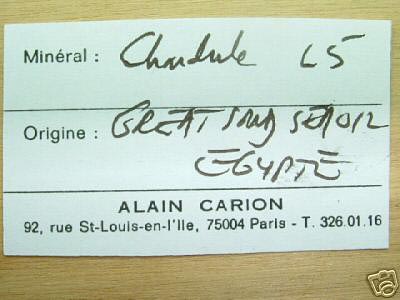 Minéral : Chondrule L5
Origine : GREAT SAND SEA
EGYPTE
ALAIN CARION
92, rue St-Louis-en-l'Ile, 75004 Paris - T. 326.01.16